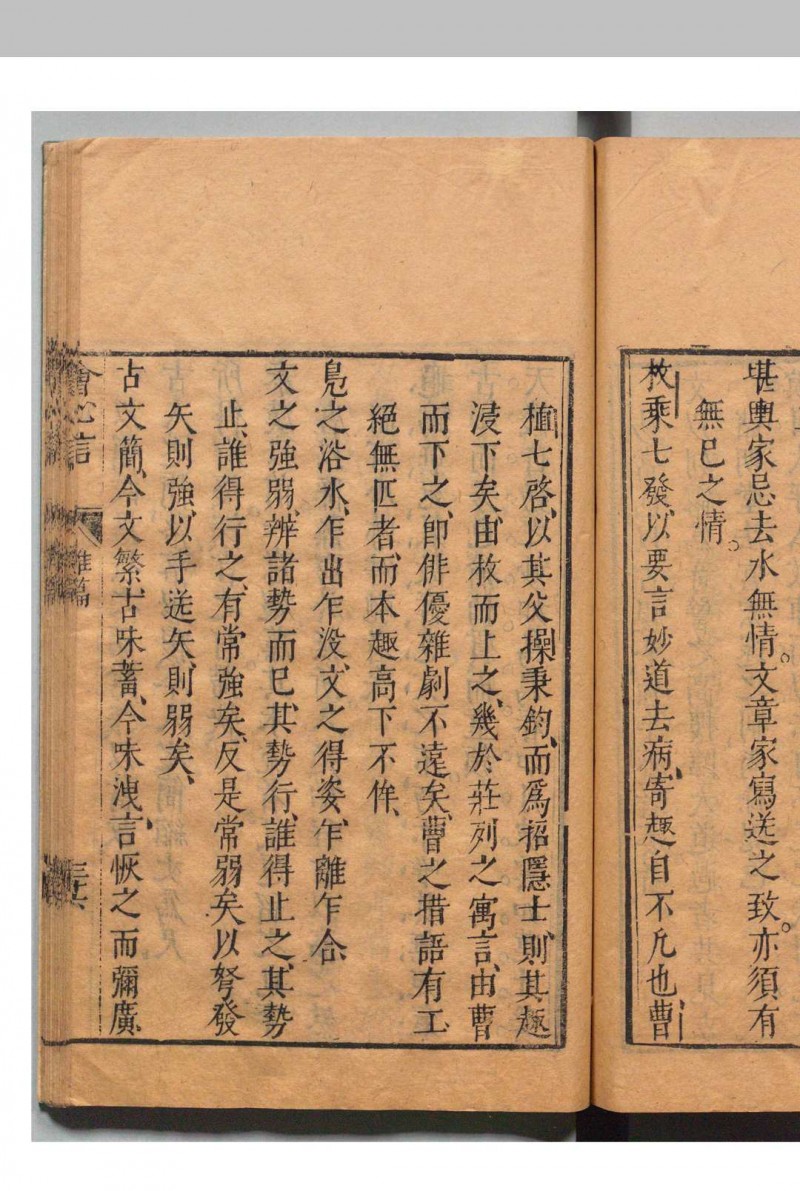 堪輿家忌去水無情。文章家寫送之致。亦須有
無已之情。
枚乘七發、以要言妙道去病、寄趣自不凡也、曹
植七啓、以其父操秉鈞、而爲招隱士、則其趣
浸下矣、由枚而上之、幾於莊列之寓言、由曹
而下之、卽俳優雜劇不遠矣、曹之措語有工
絕無匹者、而本趣高下不侔、
鳧之浴水、乍出乍没、文之得姿、乍離乍合、
文之強弱、辨諸勢而已、其勢行、誰得止之、其勢
止、誰得行之、有常強矣、反是常弱矣、以弩發
矢、則強、以手送矢、則弱矣、
古文簡、今文繁、古味蓄、今味洩、言恢之而彌廣、
會心言
雜篇